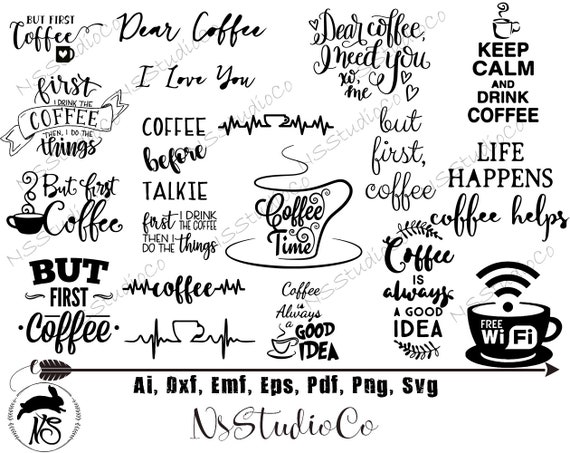 BUT FIRST
Coffee
Dear Coffee
I Love You
Dear coffee,
I need you
xo,
me
KEEP
CALM
AND
DRINK
COFFEE
first
I DRINK THE
COFFEE
THEN, I DO THE
things
COFFEE
before
TALKIE
but
first,
coffee
LIFE
HAPPENS
coffee helps
But first
Coffee
Coffee
Time
first I DRINK
THE COFFEE
THEN I
DO THE things
Coffee
IS
always
A GOOD
IDEA
BUT
FIRST
Coffee
coffee
Coffee
is
Always
a
GOOD
IDEA
FREE
Wi Fi
Ai, Dxf, Emf, Eps, Pdf, Png, Svg
NS
NsStudioCo
NSStudioCo
NSStudioCo
NSStudioCo
NSStudioCo
NSStudioCo
NSStudioCo